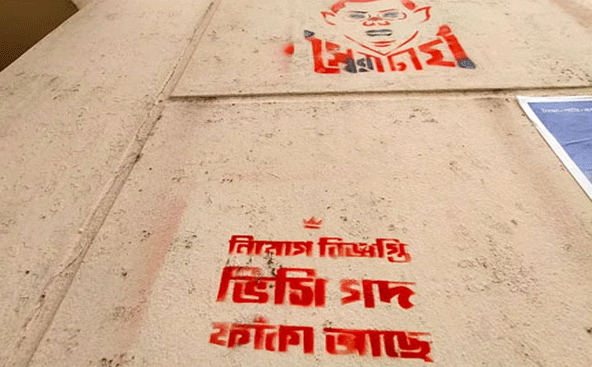 স্বৈরাচার
নিয়োগ বিজ্ঞপ্তি
ভিসি গদ
ফাঁকা আছে